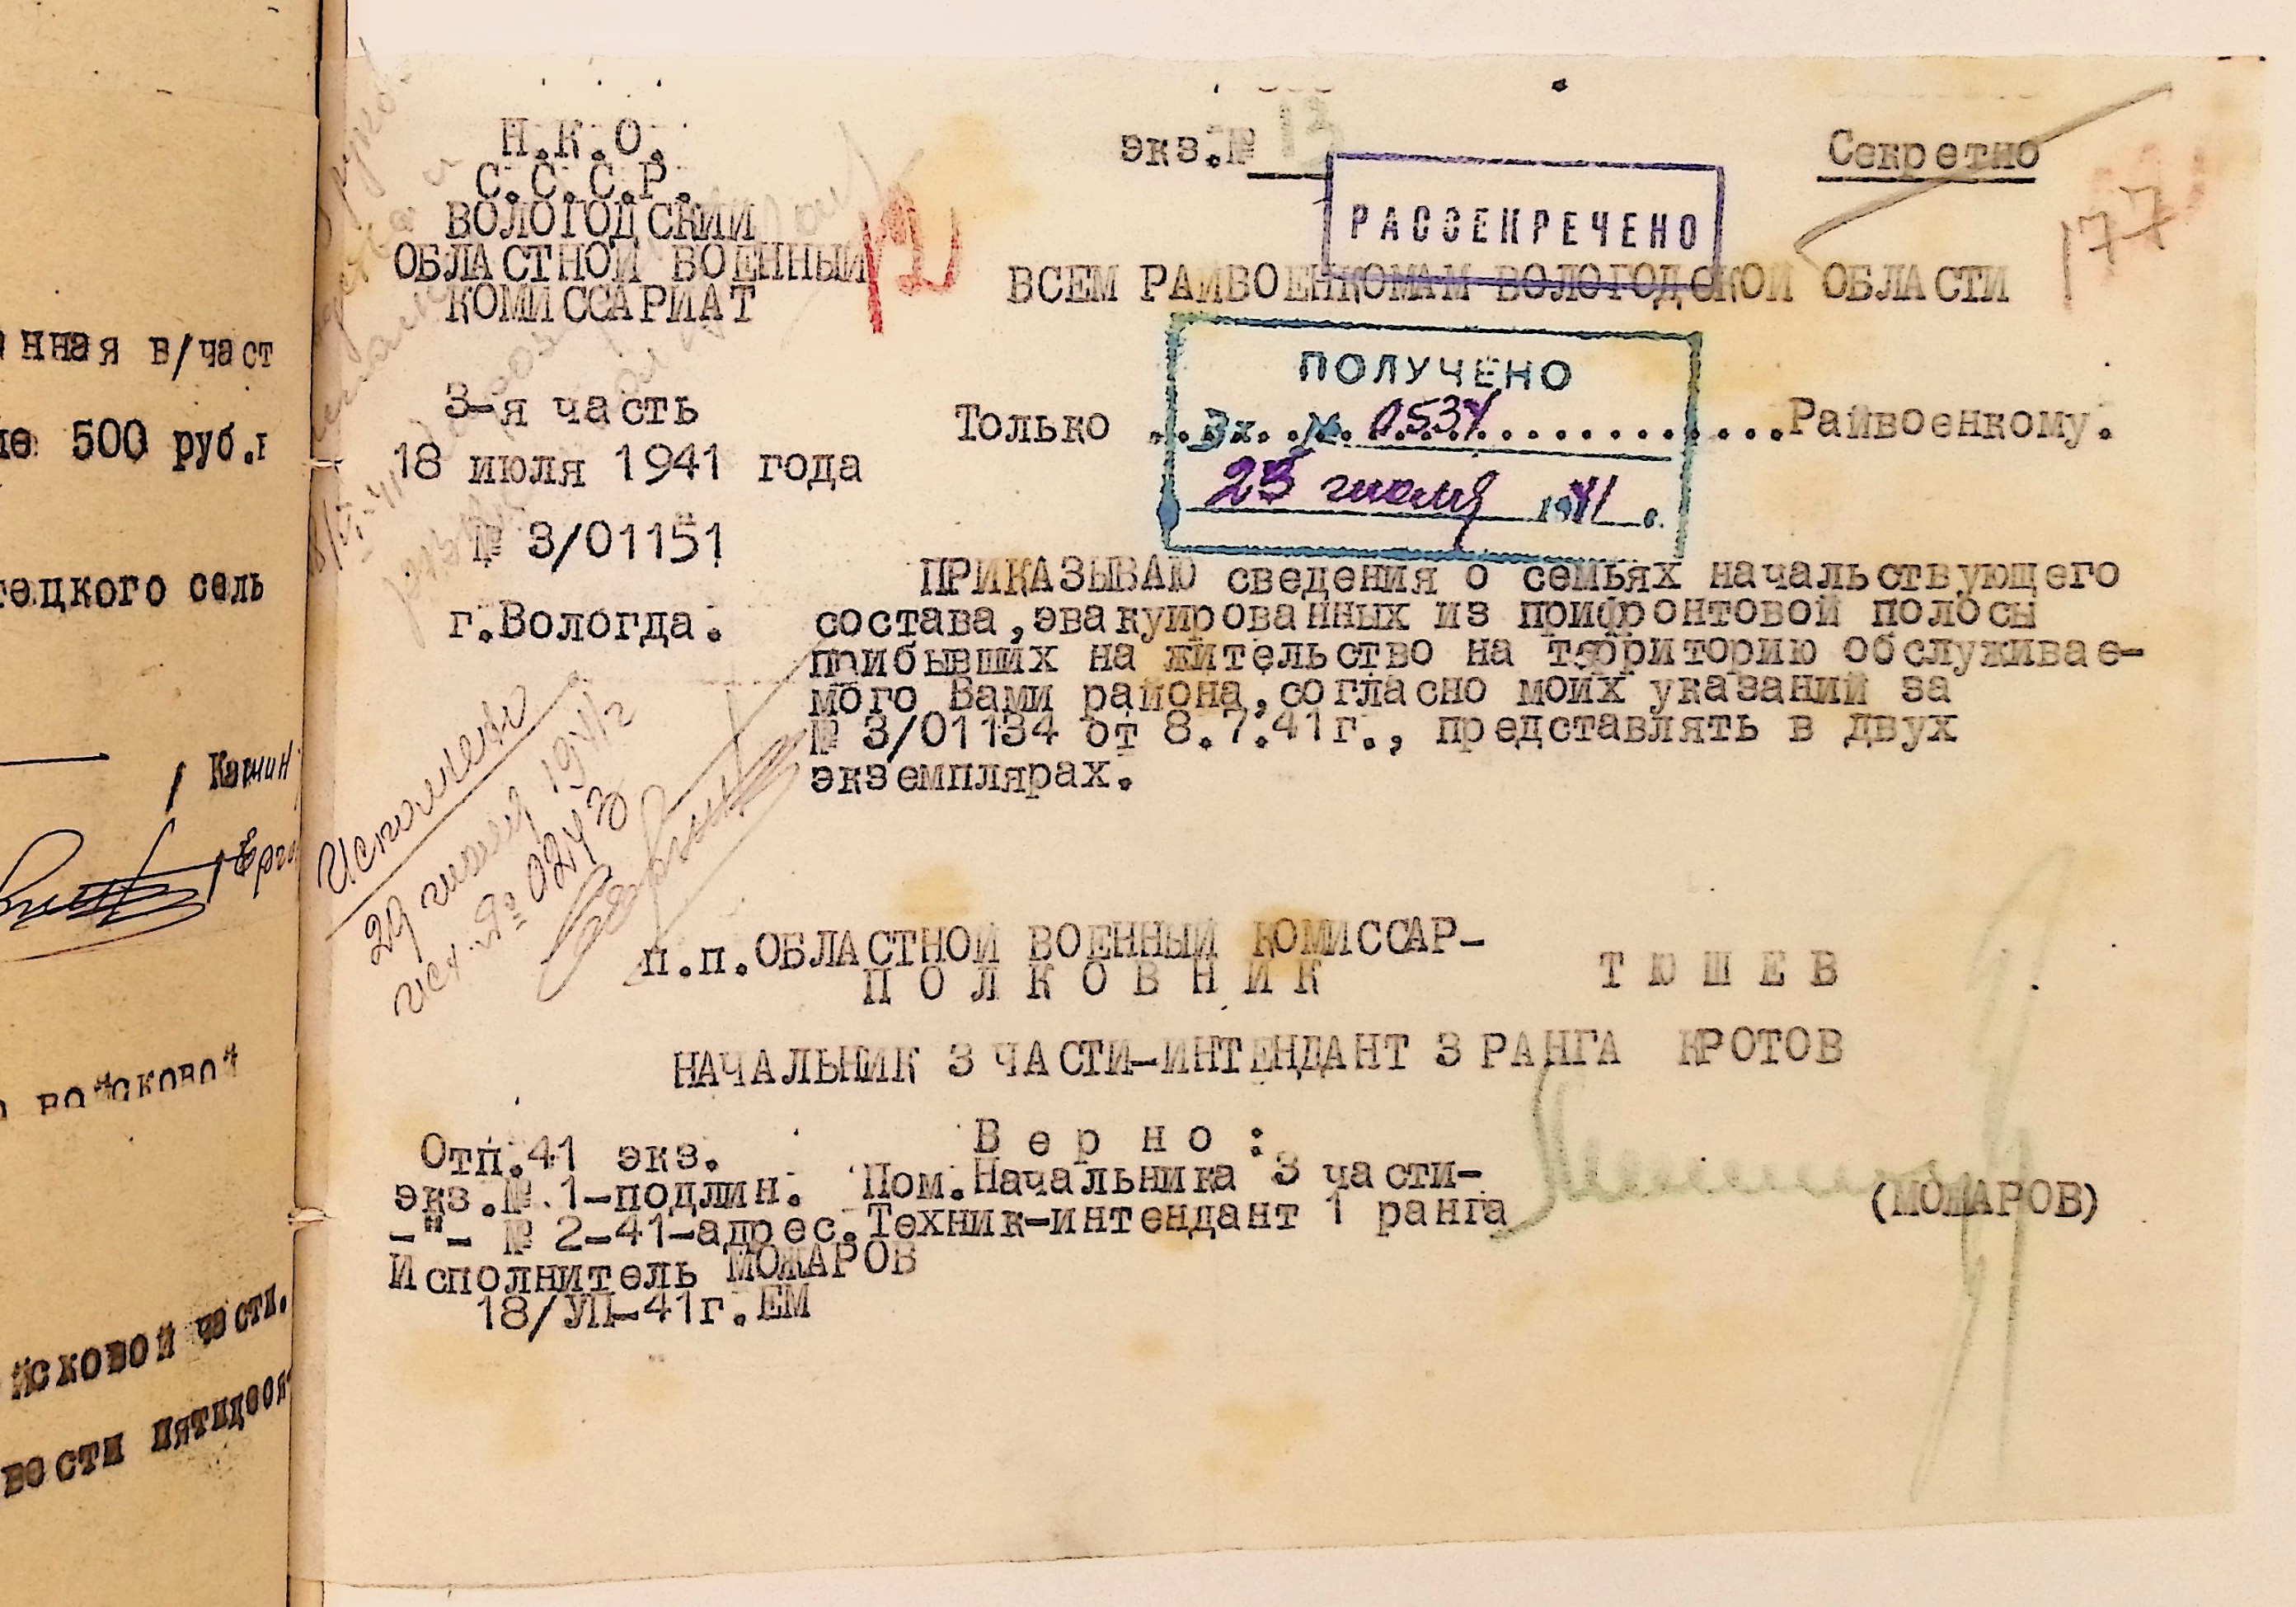 нная в/част
500 руб.
тецкого сель
Н.К.О.
С.С.С.Р.
ВОЛОГОДСКИЙ
ОБЛАСТНОЙ ВОЕННЫЙ
КОМИССАРИАТ
3-я часть
18 июля 1941 года
№ 3/01151
г.Вологда.
экз.№ 13
Секретно
РАССЕКРЕЧЕНО
177
12
ВСЕМ РАЙВОЕНКОМАМ ВОЛОГОДСКОЙ ОБЛАСТИ
ПОЛУЧЕНО
Только ................Райвоенкому.
Вх. № 0534
25 июля 1941 г.
ПРИКАЗЫВАЮ сведения о семьях начальствующего
состава,эвакуированных из прифронтовой полосы
прибывших на жительство на территорию обслуживае-
мого Вами района,согласно моих указаний за
№ 3/01134 от 8.7.41г., представлять в двух
экземплярах.
Исполнено
29 июля 1941 г
исх. № 0243
п.п.ОБЛАСТНОЙ ВОЕННЫЙ КОМИССАР-
ПОЛКОВНИК
ТЮШЕВ
НАЧАЛЬНИК 3 ЧАСТИ-ИНТЕНДАНТ 3 РАНГА КРОТОВ
Верно:
Пом.Начальника 3 части-
Техник-интендант 1 ранга
(МОЖАРОВ)
Отп.41 экз.
экз.№ 1-подлин.
-"- № 2-41-адрес.
Исполнитель МОЖАРОВ
18/УП-41г.ЕМ
войсковой
йсковой части.
вести пятидеся